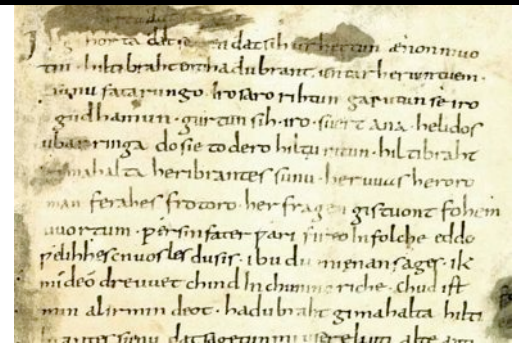 Ik gihorta dat seggen dat sih urhettun ænon muo
tin · hiltibraht enti hadubrant · untar heriun tuem ·
sunufatarungo · iro saro rihtun garutun se iro
gudhamun · gurtun sih · iro · suert ana · helidos
ubar ringa do sie to dero hiltu ritun · hiltibraht
gimahalta heribrantes sunu · her uuas heroro
man ferahes frotoro · her fragen gistuont fohem
uuortum · ƿer sin fater ƿari fireo in folche eddo
ƿelihhes cnuosles du sis · ibu du mi enan sages · ik
mi de odre uuet chind in chunincriche · chud ist
min al irmindeot · hadubraht gimahalta hilti
brantes sunu dat sagetun mi usere liuti alte anti